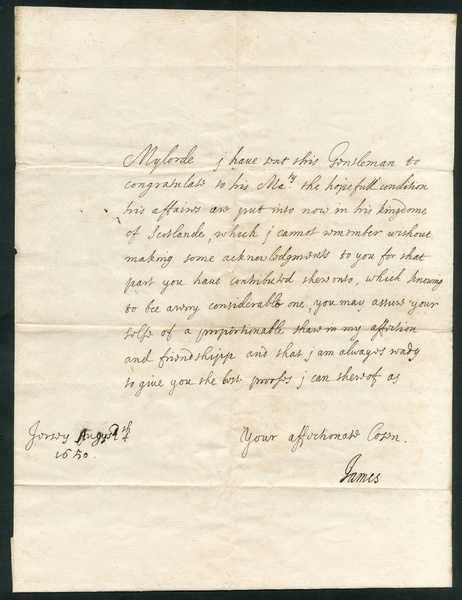 Mylorde j have sent this Gentleman to
congratulate to his Ma:ty the hopefull condition
his affaires are put into now in his kingdome
of Scotlande, which j cannot remember without
making some acknowledgments to you for that
part you have contributed thereunto, which knowing
to bee a very considerable one, you may assure your
selfe of a proportionable share in my affection
and friendshipp and that j am always ready
to give you the best proofes j can thereof as
Jersey August 4th
1650.
Your affectionate Cosen.
James